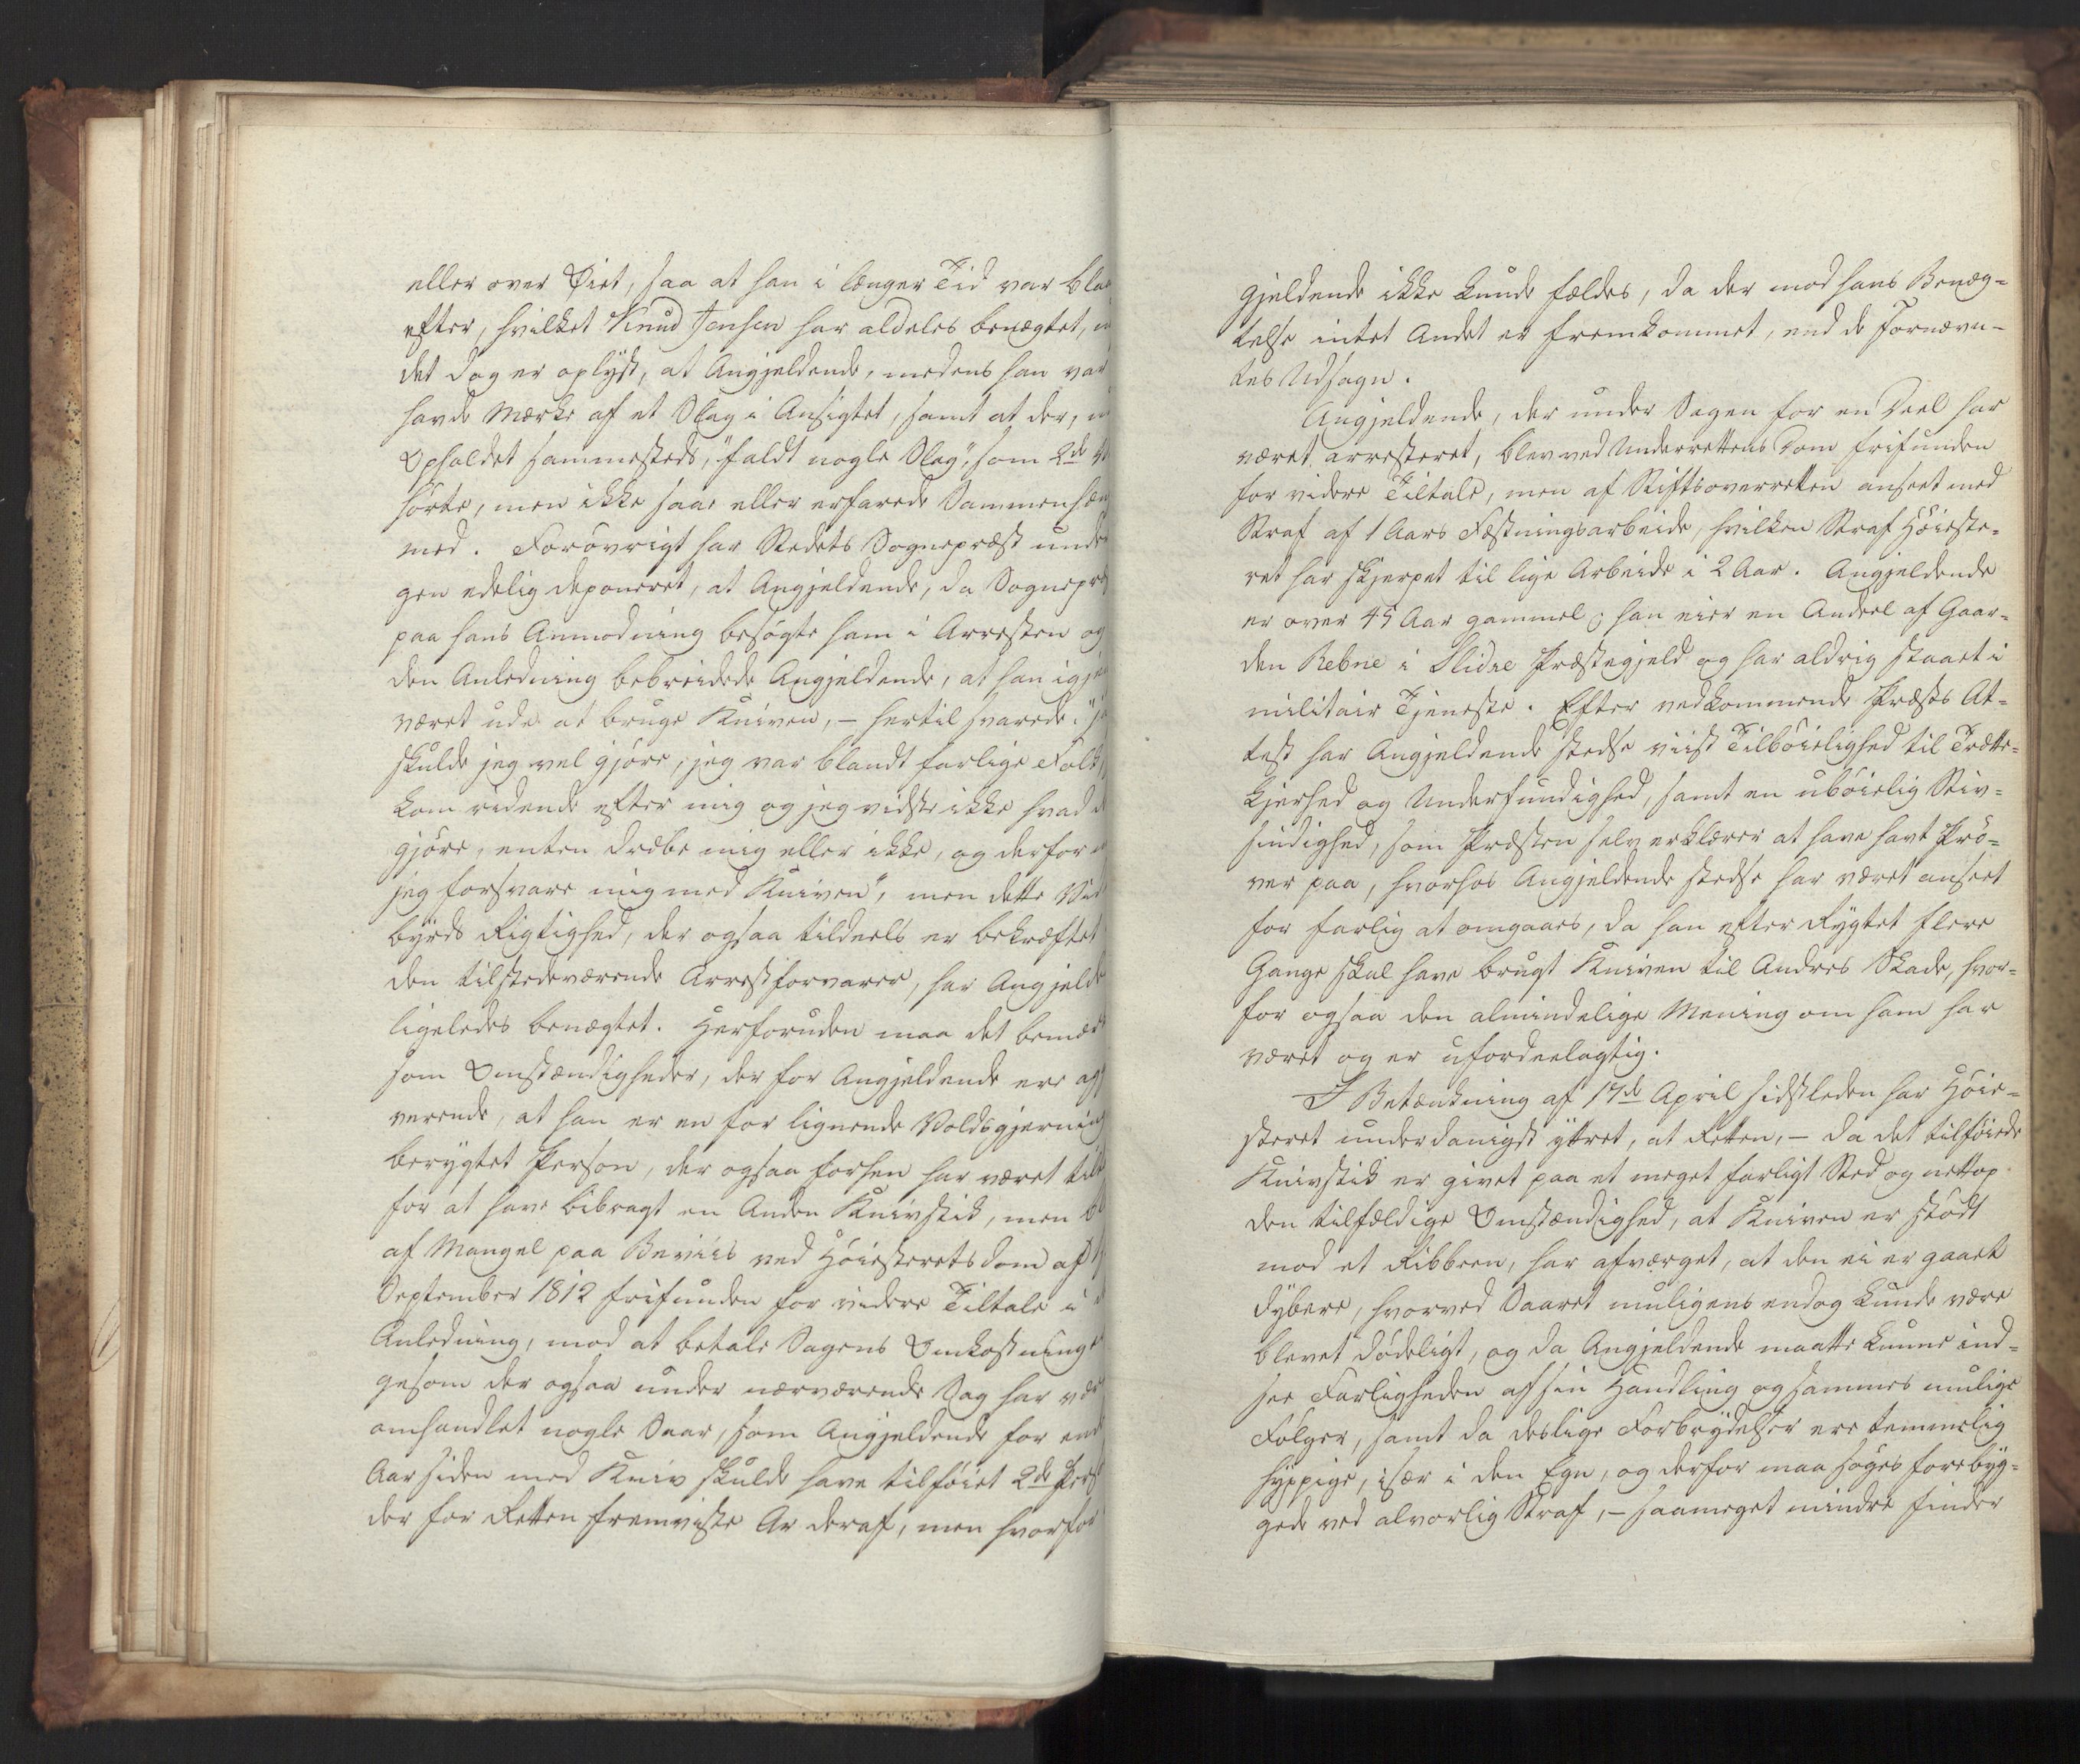 eller over Öiet, saa at han i længer Tid var
efter, hvilket Knud Jensen har aldeles benægtet,
det dog er oplyst, at Angjeldende, medens han var
havde Mærke af et Slag i Ansigtet, samt at der,
Opholdet sammesteds, "faldt nogle Slag", som 2de
hörte, men ikke saae eller erfarede
med. Forövrigt har Stedets Sognepræst
gen edelig deponeret, at Angjeldende, da
paa hans Anmodning besögte ham i Arresten og
den Anledning bebreidede Angjeldende, at han
været ude at bruge Kniven, – hertil svarede:
skulde jeg vel gjöre, jeg var blandt farlige Folk
kom ridende efter mig og jeg vidste ikke hvad
gjöre, enten dræbe mig eller ikke, og derfor
jeg forsvare mig med Kniven", men dette
byrds Rigtighed, der ogsaa tildeels er bekræftet
den tilstedeværende Arrestforvarer, har
ligeledes benægtet. Herforuden maa det
som Omstændigheder, der for Angjeldende ere
verende, at han er en for lignende
berygtet Person, der ogsaa forhen har været
for at have bibragt en Anden Knivstik, men
af Mangel paa Beviis ved Höiesteretsdom af
September 1812 frifunden for videre Tiltale i
Anledning, mod at betale Sagens
gesom der ogsaa under nærværende Sag har
omhandlet nogle Saar, som Angjeldende for
Aar siden med Kniv skulde have tilföiet 2de
der for Retten fremviste Ar deraf, men hvorfor
gjeldende ikke kunde fældes, da der mod hans Benæg-
telse intet Andet er fremkommet, end de Fornævn-
tes Udsagn.
Angjeldende, der under Sagen for en Deel har
været arresteret, blev ved Underrettens Dom frifunden
for videre Tiltale, men af Stiftsoverretten anseet med
Straf af 1 Aars Fæstningsarbeide, hvilken Straf Höieste-
ret har skjerpet til lige Arbeide i 2 Aar. Angjeldende
er over 45 Aar gammel; han eier en Andeel af Gaar-
den Rebne i Slidre Præstegjeld og har aldrig staaet i
militair Tjeneste. Efter vedkommende Præsts At-
test har Angjeldende stedse viist Tilböielighed til Trætte-
kjerhed og Underfundighed, samt en uböielig Stiv-
sindighed, som Præsten selv erklærer at have havt Prö-
ver paa, hvorhos Angjeldende stedse har været anseet
for farlig at omgaaes, da han efter Rygtet flere
Gange skal have brugt Kniven til Andres Skade, hvor-
for ogsaa den almindelige Mening om ham har
været og er ufordeelagtig.
I Betænkning af 17de April sidstleden har Höie-
steret underdanigst yttret, at Retten, – da det tilföiede
Knivstik er givet paa et meget farligt Sted og nettop
den tilfældige Omstændighed, at Kniven er stödt
mod et Ribbeen, har afværget, at den ei er gaaet
dybere, hvorved Saaret muligens endog kunde være
blevet dödeligt, og da Angjeldende maatte kunne ind-
see Farligheden af sin Handling og sammes mulige
Fölger, samt da deslige Forbrydelser ere temmelig
hyppige, især i den Egn, og derfor maa söges forebyg-
gede ved alvorlig Straf, – saameget mindre finder